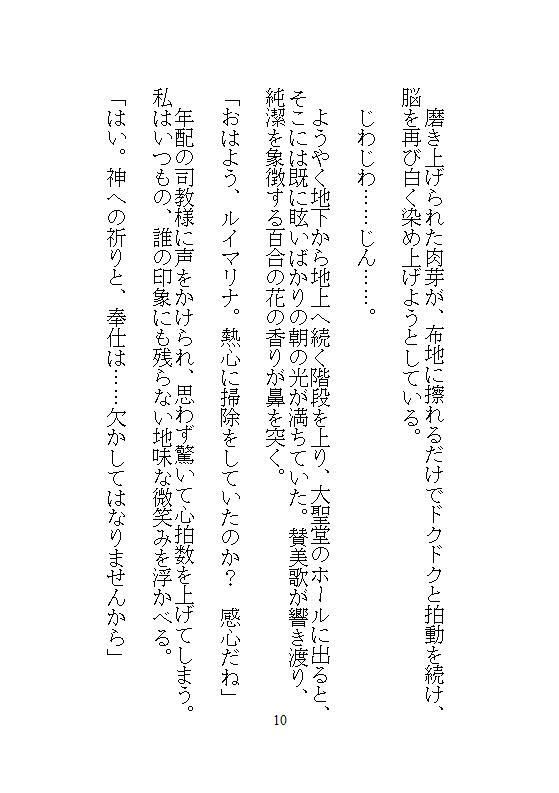 磨き上げられた肉芽が、布地に擦れるだけでドクドクと拍動を続け、
脳を再び白く染め上げようとしている。
じわじわ……じん……。
ようやく地下から地上へ続く階段を上り、大聖堂のホールに出ると、
そこには既に眩いばかりの朝の光が満ちていた。賛美歌が響き渡り、
純潔を象徴する百合の花の香りが鼻を突く。
「おはよう、ルイマリナ。熱心に掃除をしていたのか？　感心だね」
年配の司教様に声をかけられ、思わず驚いて心拍数を上げてしまう。
私はいつもの、誰の印象にも残らない地味な微笑みを浮かべる。
「はい。神への祈りと、奉仕は……欠かしてはなりませんから」
10